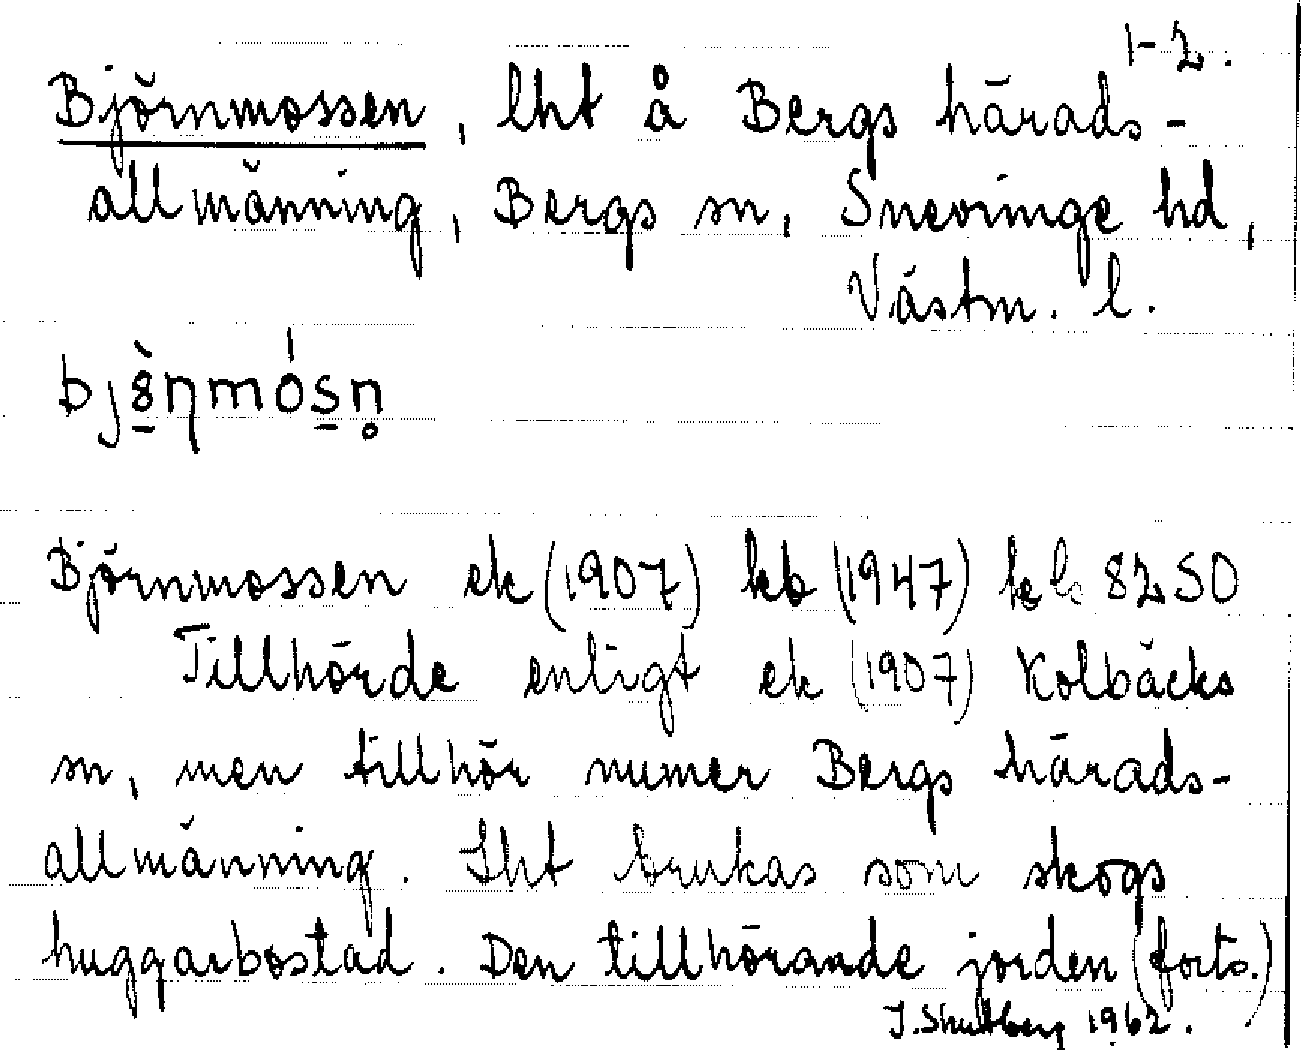 1-2.
Björnmossen, lht å Bergs härads-
allmänning, Bergs sn, Snevringe hd,
Västm. l.
Björnmossen ek (1907) kb (1947) kb 8250
Tillhörde enligt ek (1907) Kolbäcks
sn, men tillhör numer Bergs härads-
allmänning. Lht brukas som skogs
huggarbostad. Den tillhörande jorden (forts.)
1962.